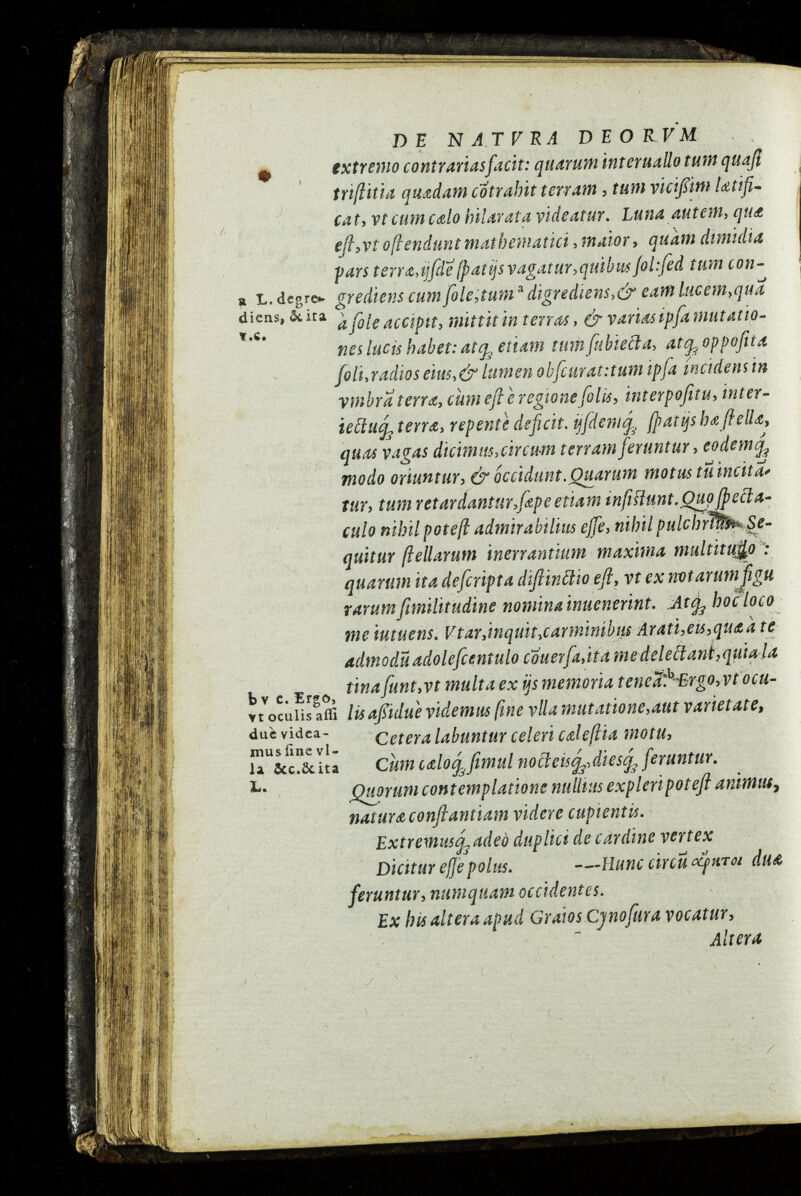 DE NATVRA DEORVM
extremo contrarias facit: quarum interuallo tum quasi
tristitia quædam cõtrahit terram, tum vicißim lætifi-
cat, vt cum cælo hilarata videatur. Luna autem, quæ
est, vt ostendunt mathematici, maior, quàm dimidia
pars terræ, ijsdẽ spatijs vagatur, quibus sol: sed tum con-
grediens cum sole, tum ᵃ digrediens, & eam lucem, quã
à sole accipit, mittit in terras, & varias ipsa mutatio-
nes lucis habet: atq; etiam tum subiecta, atq; opposita
soli, radios eius, & lumen obscurat: tum ipsa incidens in
vmbrã terræ, cùm est è regione solis, interpositu, inter-
iectuq; terræ, repentè deficit. ijsdemq; spatijs hæ stellæ,
quas vagas dicimus, circum terram feruntur, eodemq;
modo oriuntur, & occidunt. Quarum motus tũ incitã-
tur, tum retardantur, sæpe etiam insistunt. Quo specta-
culo nihil potest admirabilius esse, nihil pulchrius. Se-
quitur stellarum inerrantium maxima multitudo:
quarum ita descripta distinctio est, vt ex notarum figu
rarum similitudine nomina inuenerint. Atq; hoc loco
me iutuens. Vtar, inquit, carminibus Arati, eis, quæ à te
admodũ adolescentulo cõuersa, ita me delectant, quia la
tina sunt, vt multa ex ijs memoria teneã. ᵇ Ergo, vt ocu-
lis aßiduè videmus sine vlla mutatione, aut varietate,
Cetera labuntur celeri cælestia motu,
Cùm cæloq; simul nocteisq;, diesq; feruntur.
Quorum contemplatione nullius expleri potest animus,
naturæ constantiam videre cupientis.
Extremusq; adeò duplici de cardine vertex
Dicitur esse polus. —Hunc circũ ἄρκτοι duæ
feruntur, numquam occidentes.
Ex his altera apud Graios Cynosura vocatur,
Altera
a L. degre-
diens, & ita
v.c.
b v c. Ergo,
vt oculis assi
duè videa-
mus sine vl-
la &c. & ita
L.